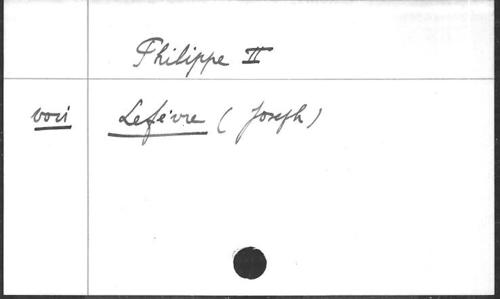 Philippe II
voir Lefèvre (Joseph)